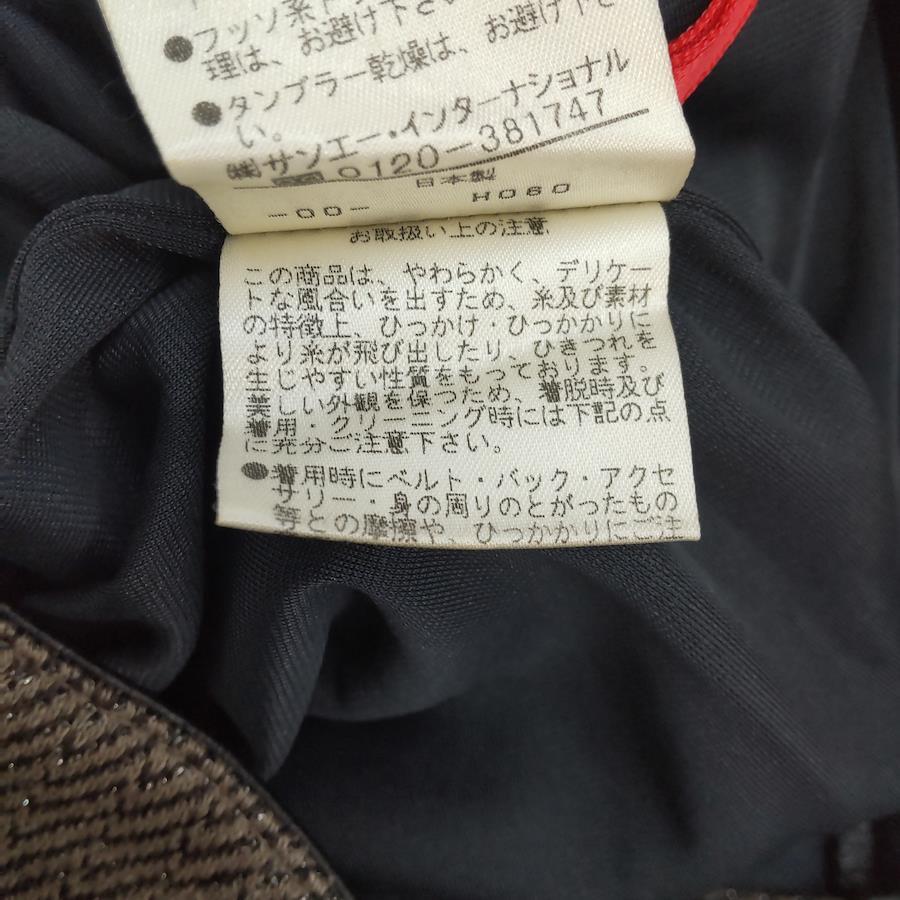 ●フッソ系ド
理は、お避け下さい
●タンブラー乾燥は、お避け下さ
い。
㈱サンエー・インターナショナル
0120-381747
日本製
-00- H060
お取扱い上の注意
この商品は、やわらかく、デリケー
トな風合いを出すため、糸及び素材
の特徴上、ひっかけ・ひっかかりに
より糸が飛び出したり、ひきつれを
生じやすい性質をもっております。
美しい外観を保つため、着脱時及び
着用・クリーニング時には下記の点
に充分ご注意下さい。
●着用時にベルト・バック・アクセ
サリー・身の周りのとがったもの
等との摩擦や、ひっかかりにご注